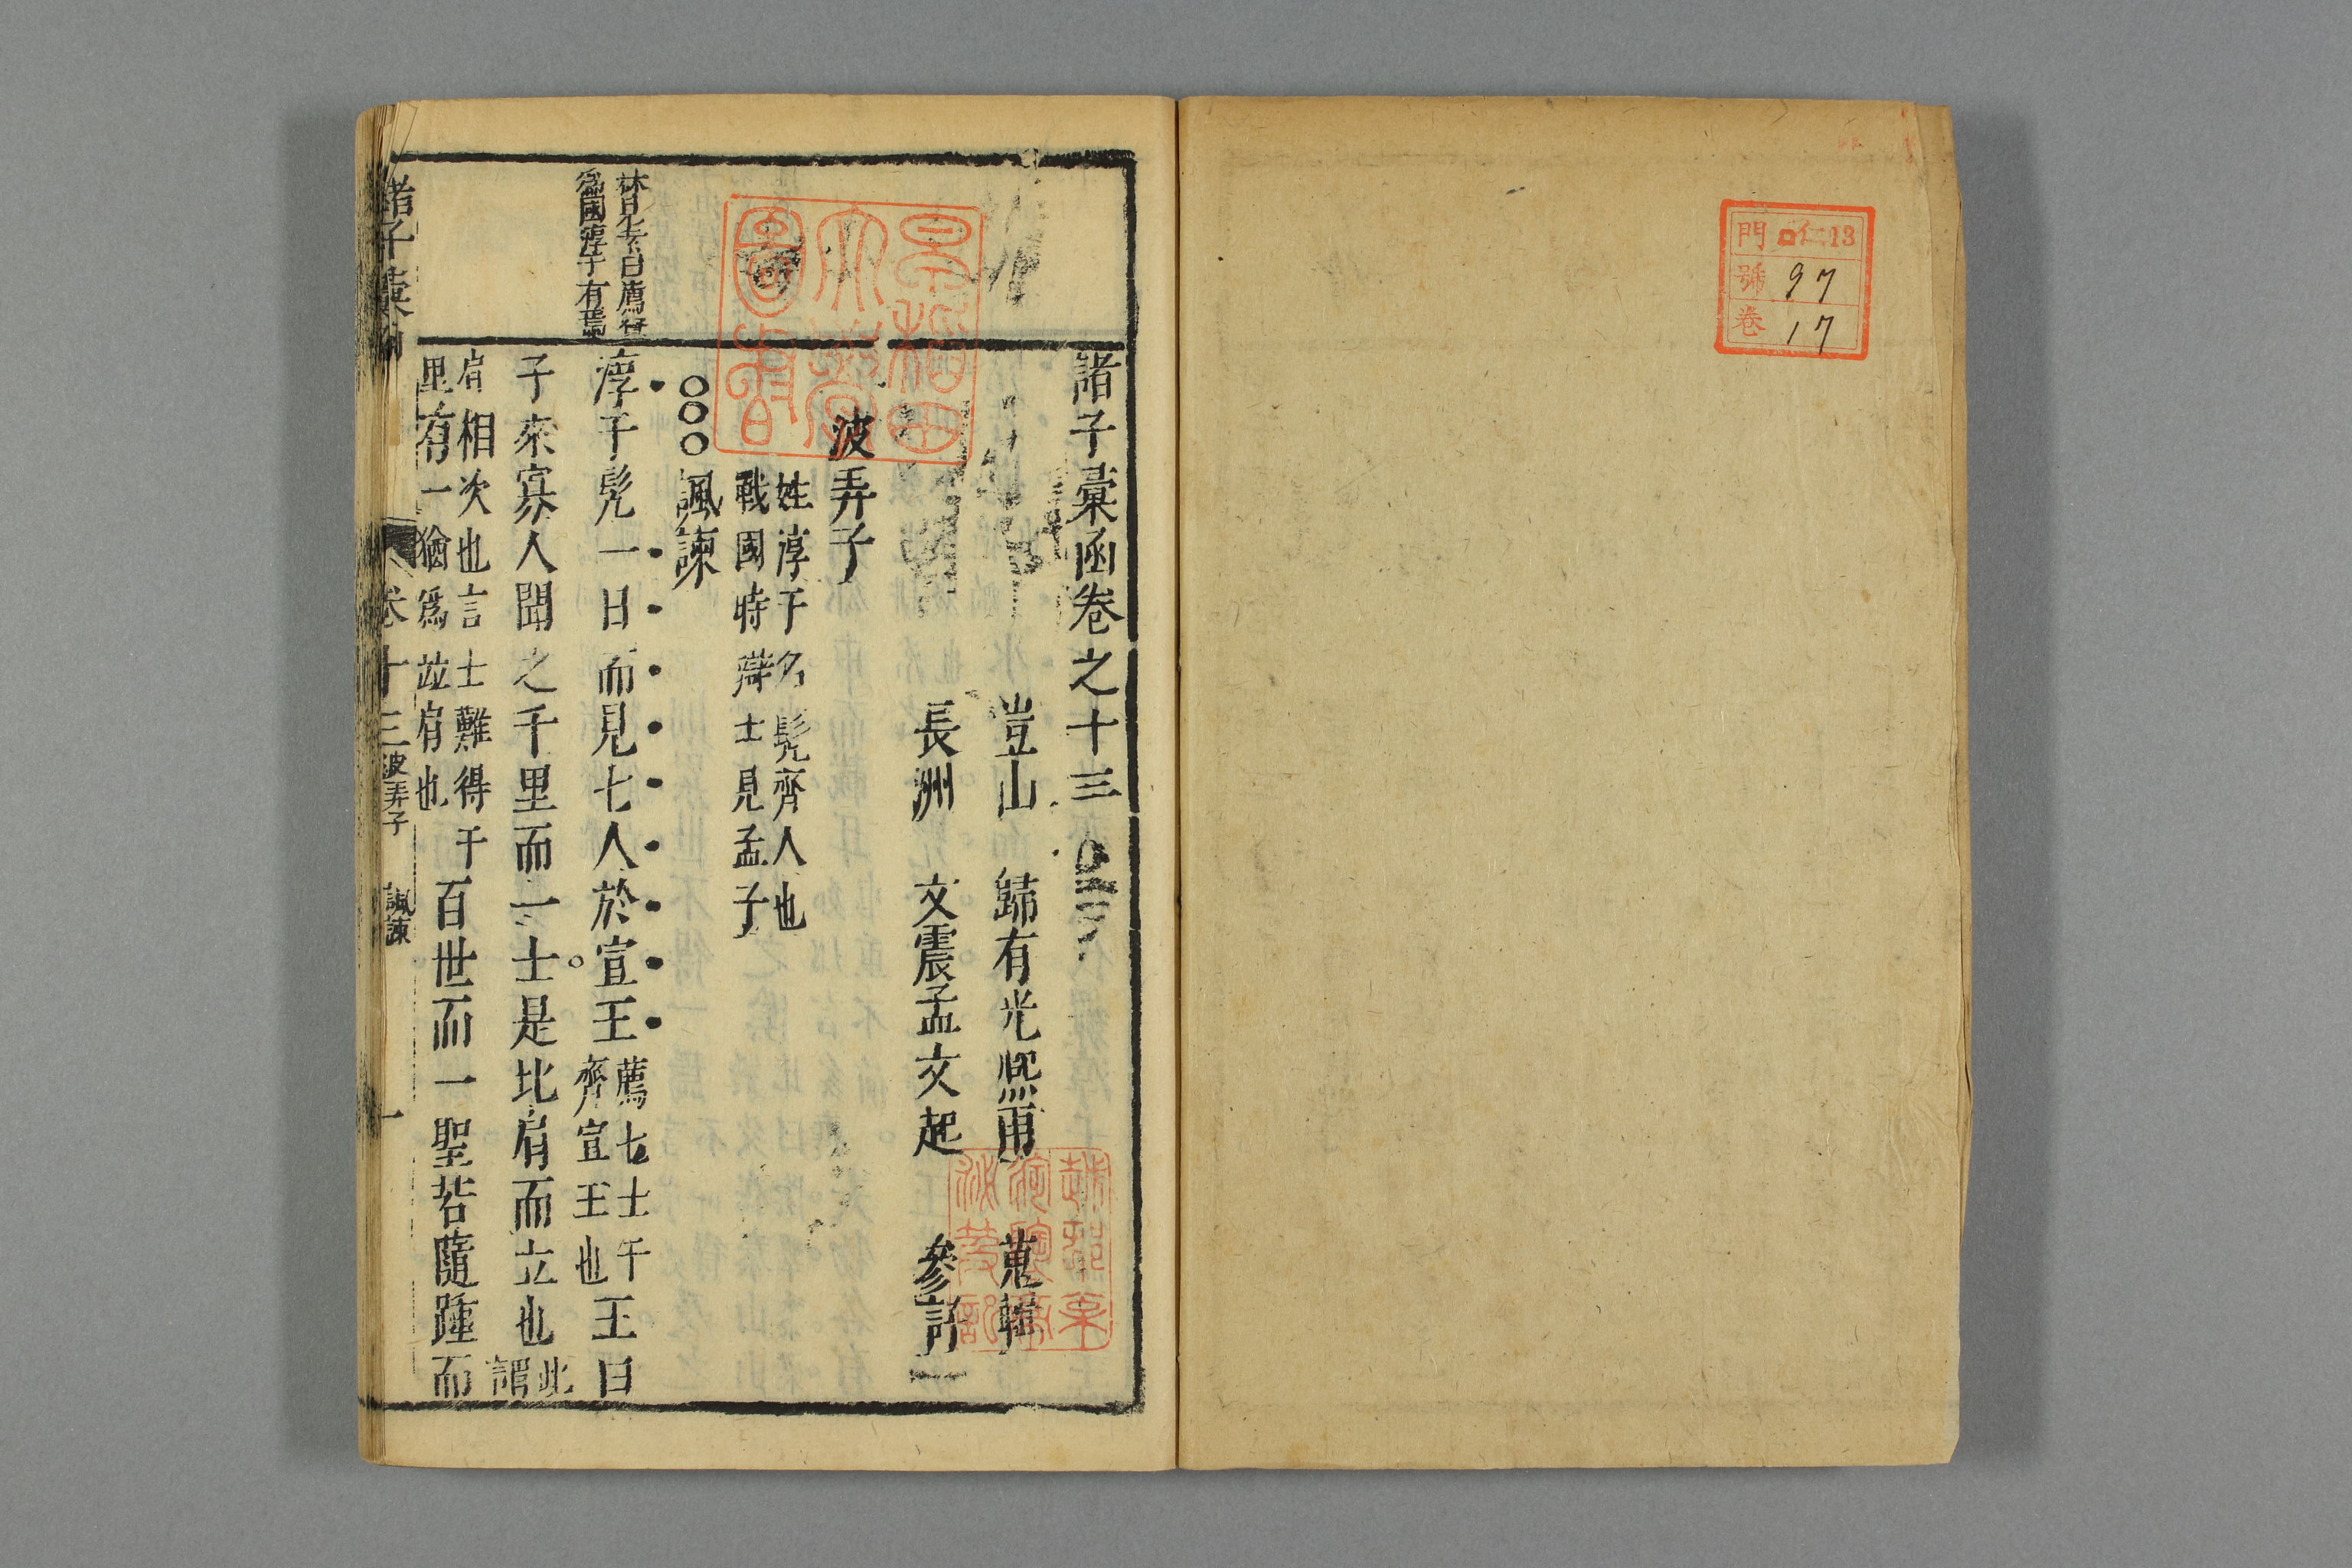 門 仁13
號 97
卷 17
諸子彙函卷之十三
崑山 歸有光熙甫 蒐輯
長洲 文震孟文起 參訂
波弄子
姓淳于名髡齊人也
戰國時辯士見孟子
諷諫
淳于髡一日而見七人於宣王
薦七士于
齊宣王也
王曰
子來寡人聞之千里而一士是比肩而立也
此
謂
肩相次也言士難得千
里有一猶爲並肩也
百世而一聖若隨踵而
爲國淳于有焉
諸子彙函
卷十三
波弄子
諷諫
一